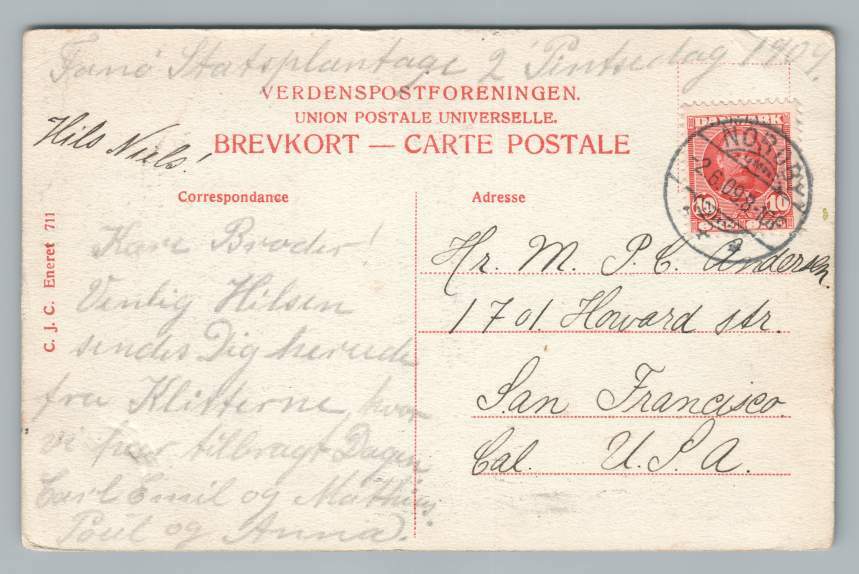 Fanö Statsplantage 2' Pintsedag 1909.
VERDENSPOSTFORENINGEN.
UNION POSTALE UNIVERSELLE.
BREVKORT — CARTE POSTALE
Hils Niels!
DANMARK
10 10
NORDBY
2.6.09.8-10
Correspondance
Adresse
C. J. C. Eneret 711
Kære Broder!
Venlig Hilsen
sendes Dig herude
fra Klitterne, hvor
vi har tilbragt Dagen
Carl Emil og Mathias
Poul og Anna.
Hr. M. P. C. Andersen.
1701. Howard str.
San Francisco.
Cal. U. S. A.